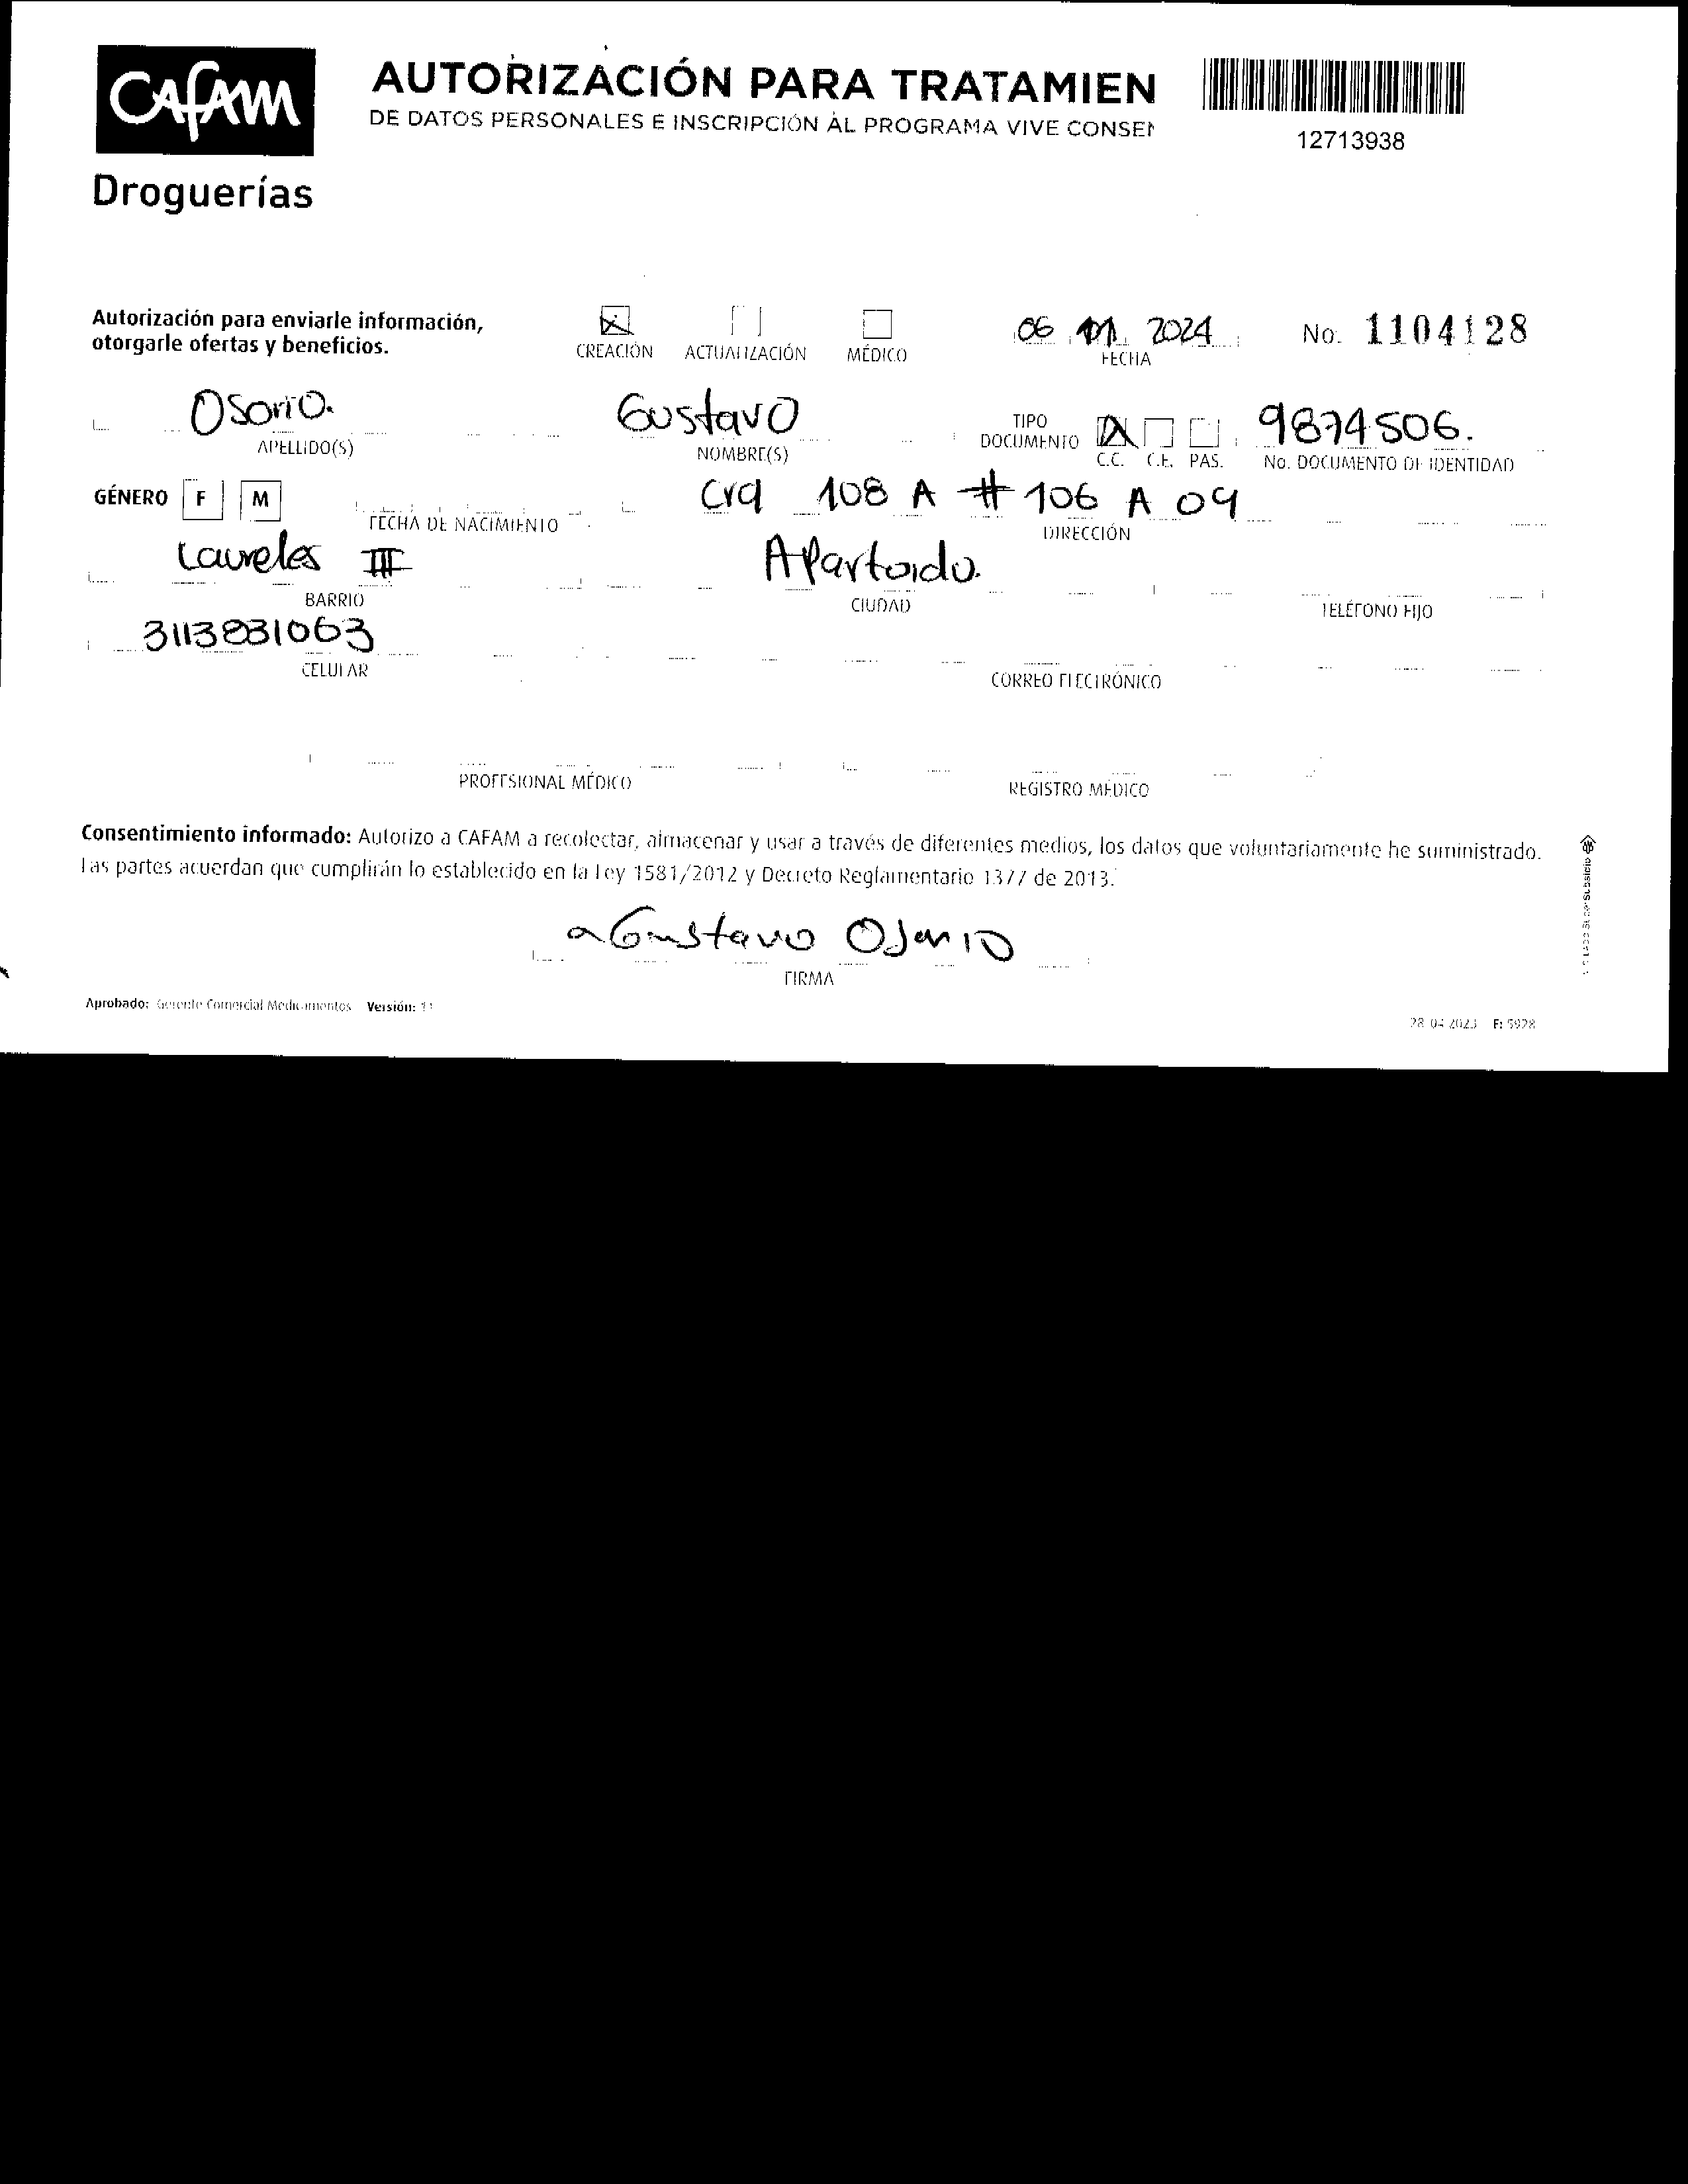 CAFAM
Droguerías
AUTORIZACIÓN PARA TRATAMIEN
DE DATOS PERSONALES E INSCRIPCIÓN AL PROGRAMA VIVE CONSEN
12713938
Autorización para enviarle información,
otorgarle ofertas y beneficios.
CREACIÓN ACTUALIZACIÓN MÉDICO
06 11 2024
FECHA
No. 1104128
Osorio.
APELLIDO(S)
Gustavo
NOMBRE(S)
TIPO
DOCUMENTO
C.C. C.E. PAS.
9874506.
No. DOCUMENTO DE IDENTIDAD
GÉNERO F M
FECHA DE NACIMIENTO
Cra 108 A # 106 A 09
DIRECCIÓN
Laureles III
BARRIO
Apartado.
CIUDAD
TELÉFONO FIJO
3113831063
CELULAR
CORREO ELECTRÓNICO
PROFESIONAL MÉDICO
REGISTRO MÉDICO
Consentimiento informado: Autorizo a CAFAM a recolectar, almacenar y usar a través de diferentes medios, los datos que voluntariamente he suministrado.
Las partes acuerdan que cumplirán lo establecido en la Ley 1581/2012 y Decreto Reglamentario 1377 de 2013.
Gustavo Osorio
FIRMA
Aprobado: Gerente Comercial Medicamentos Versión: 11
28 04 2023 F: 5928